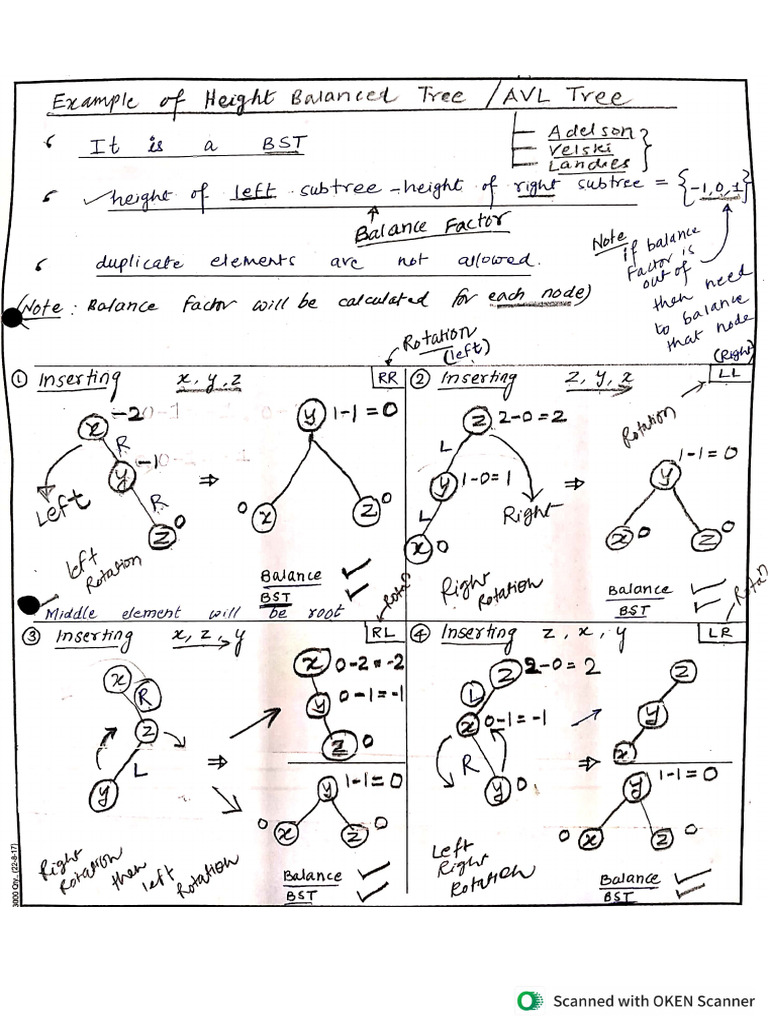 Example of Height Balanced Tree / AVL Tree
It is a BST
Adelson
Velski
Landies
height of left subtree - height of right subtree = {-1, 0, 1}
Balance Factor
duplicate elements are not allowed.
Note if balance
Factor is
out of
then need
to balance
that node
(Note : Balance Factor will be calculated for each node)
Rotation
(left)
(Right)
① Inserting x, y, z RR
x -2
R
y -1
R
z 0
Left
left
Rotation
⇒
y 1-1=0
0 x
z 0
Balance ✓
BST ✓
Middle element will be root
② Inserting z, y, x LL
Rotation
z 2-0=2
L
y 1-0=1
L
x 0
Right
Right
Rotation
⇒
y 1-1=0
x 0
z 0
Balance ✓
BST ✓
③ Inserting x, z, y RL
x
R
z
L
y
Right
Rotation
then
left
Rotation
⇒
x 0-2=-2
y 0-1=-1
z 0
y 1-1=0
0 x
z 0
Balance ✓
BST ✓
④ Inserting z, x, y LR
z 2-0=2
L
x 0-1=-1
R
y 0
Left
Right
Rotation
⇒
z
y
x
y 1-1=0
0 x
z 0
Balance ✓
BST ✓
3000 Qty. (22-8-17)
Scanned with OKEN Scanner